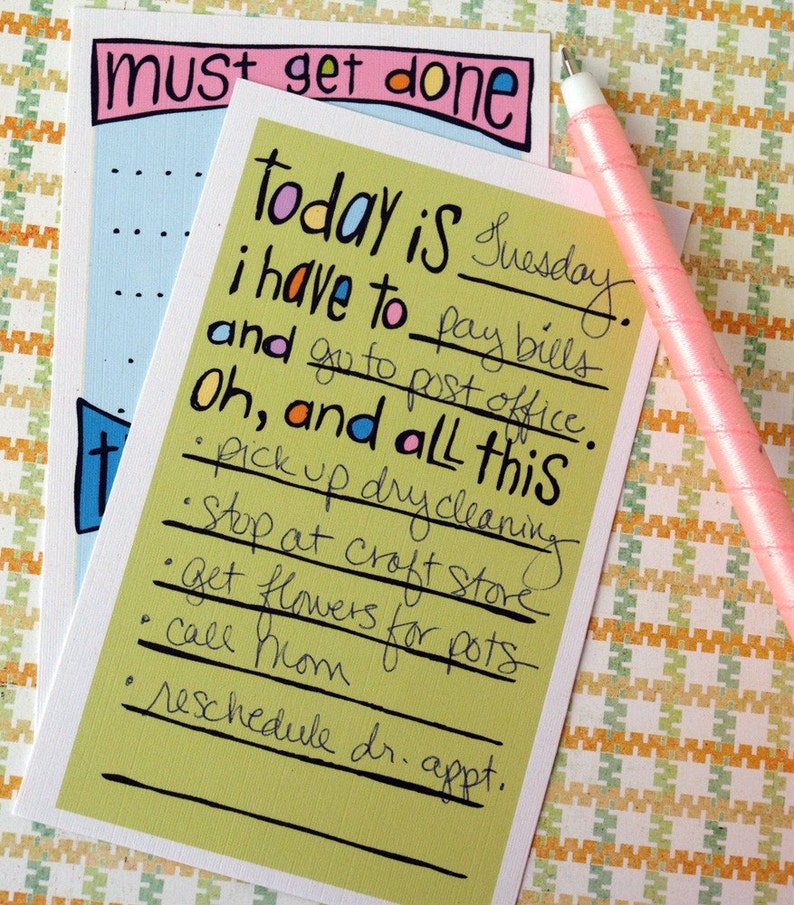 must get done
today is Tuesday.
i have to pay bills
and go to post office.
Oh, and all this
• pick up dry cleaning
• stop at craft store
• get flowers for pots
• call Mom
• reschedule dr. appt.